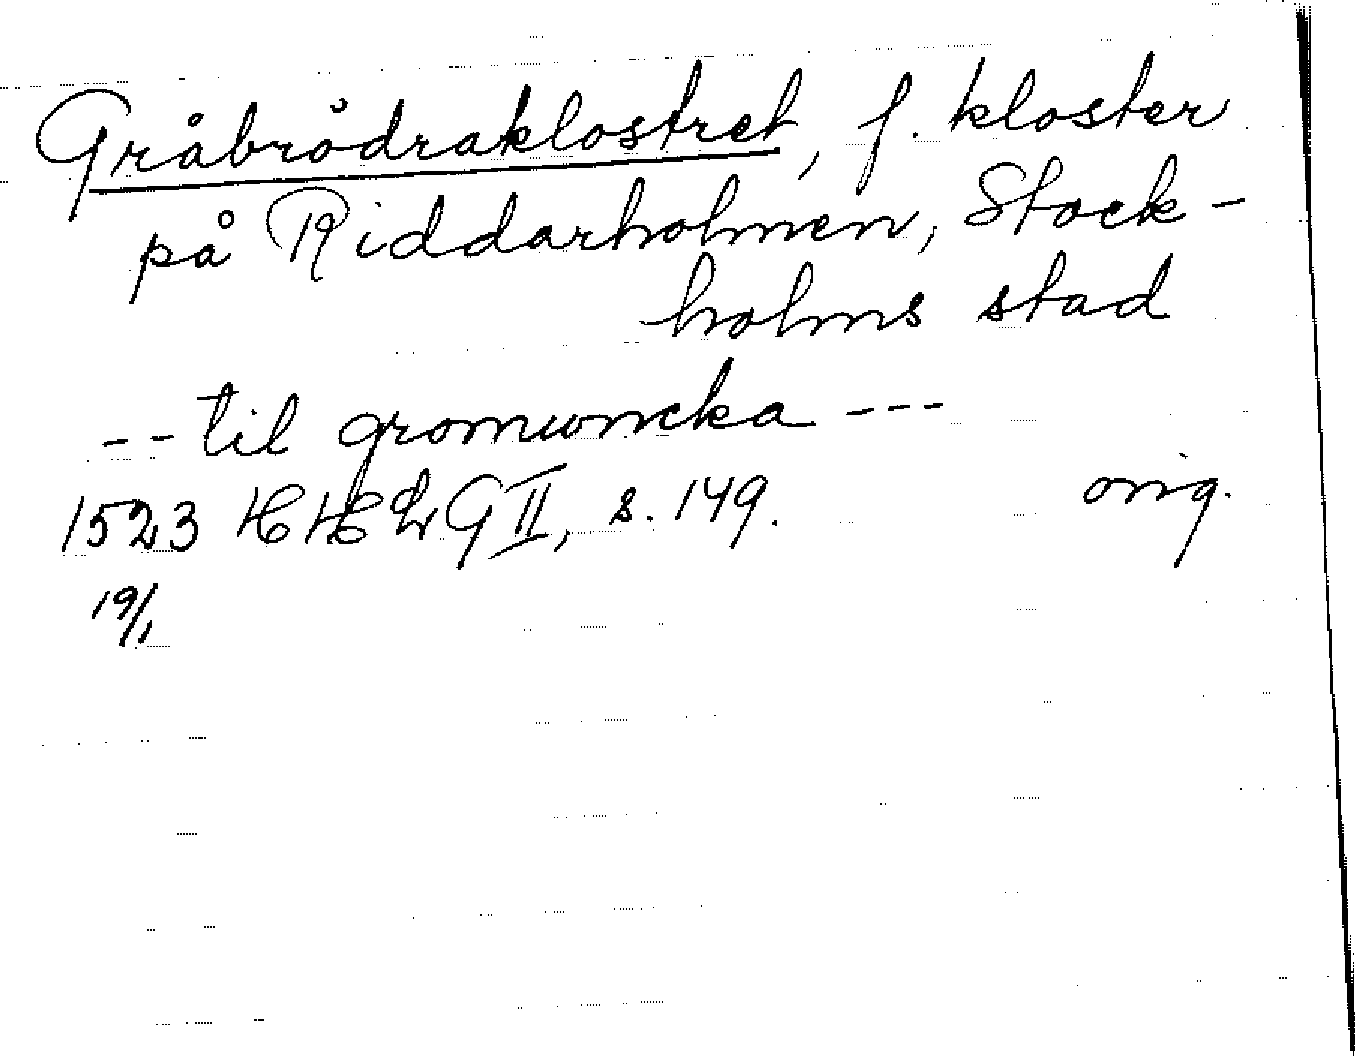 Gråbrödraklostret, f. kloster
på Riddarholmen, Stock-
holms stad
-- til gromwncka ---
1523 HHLG II, s. 149. orig.
19/1